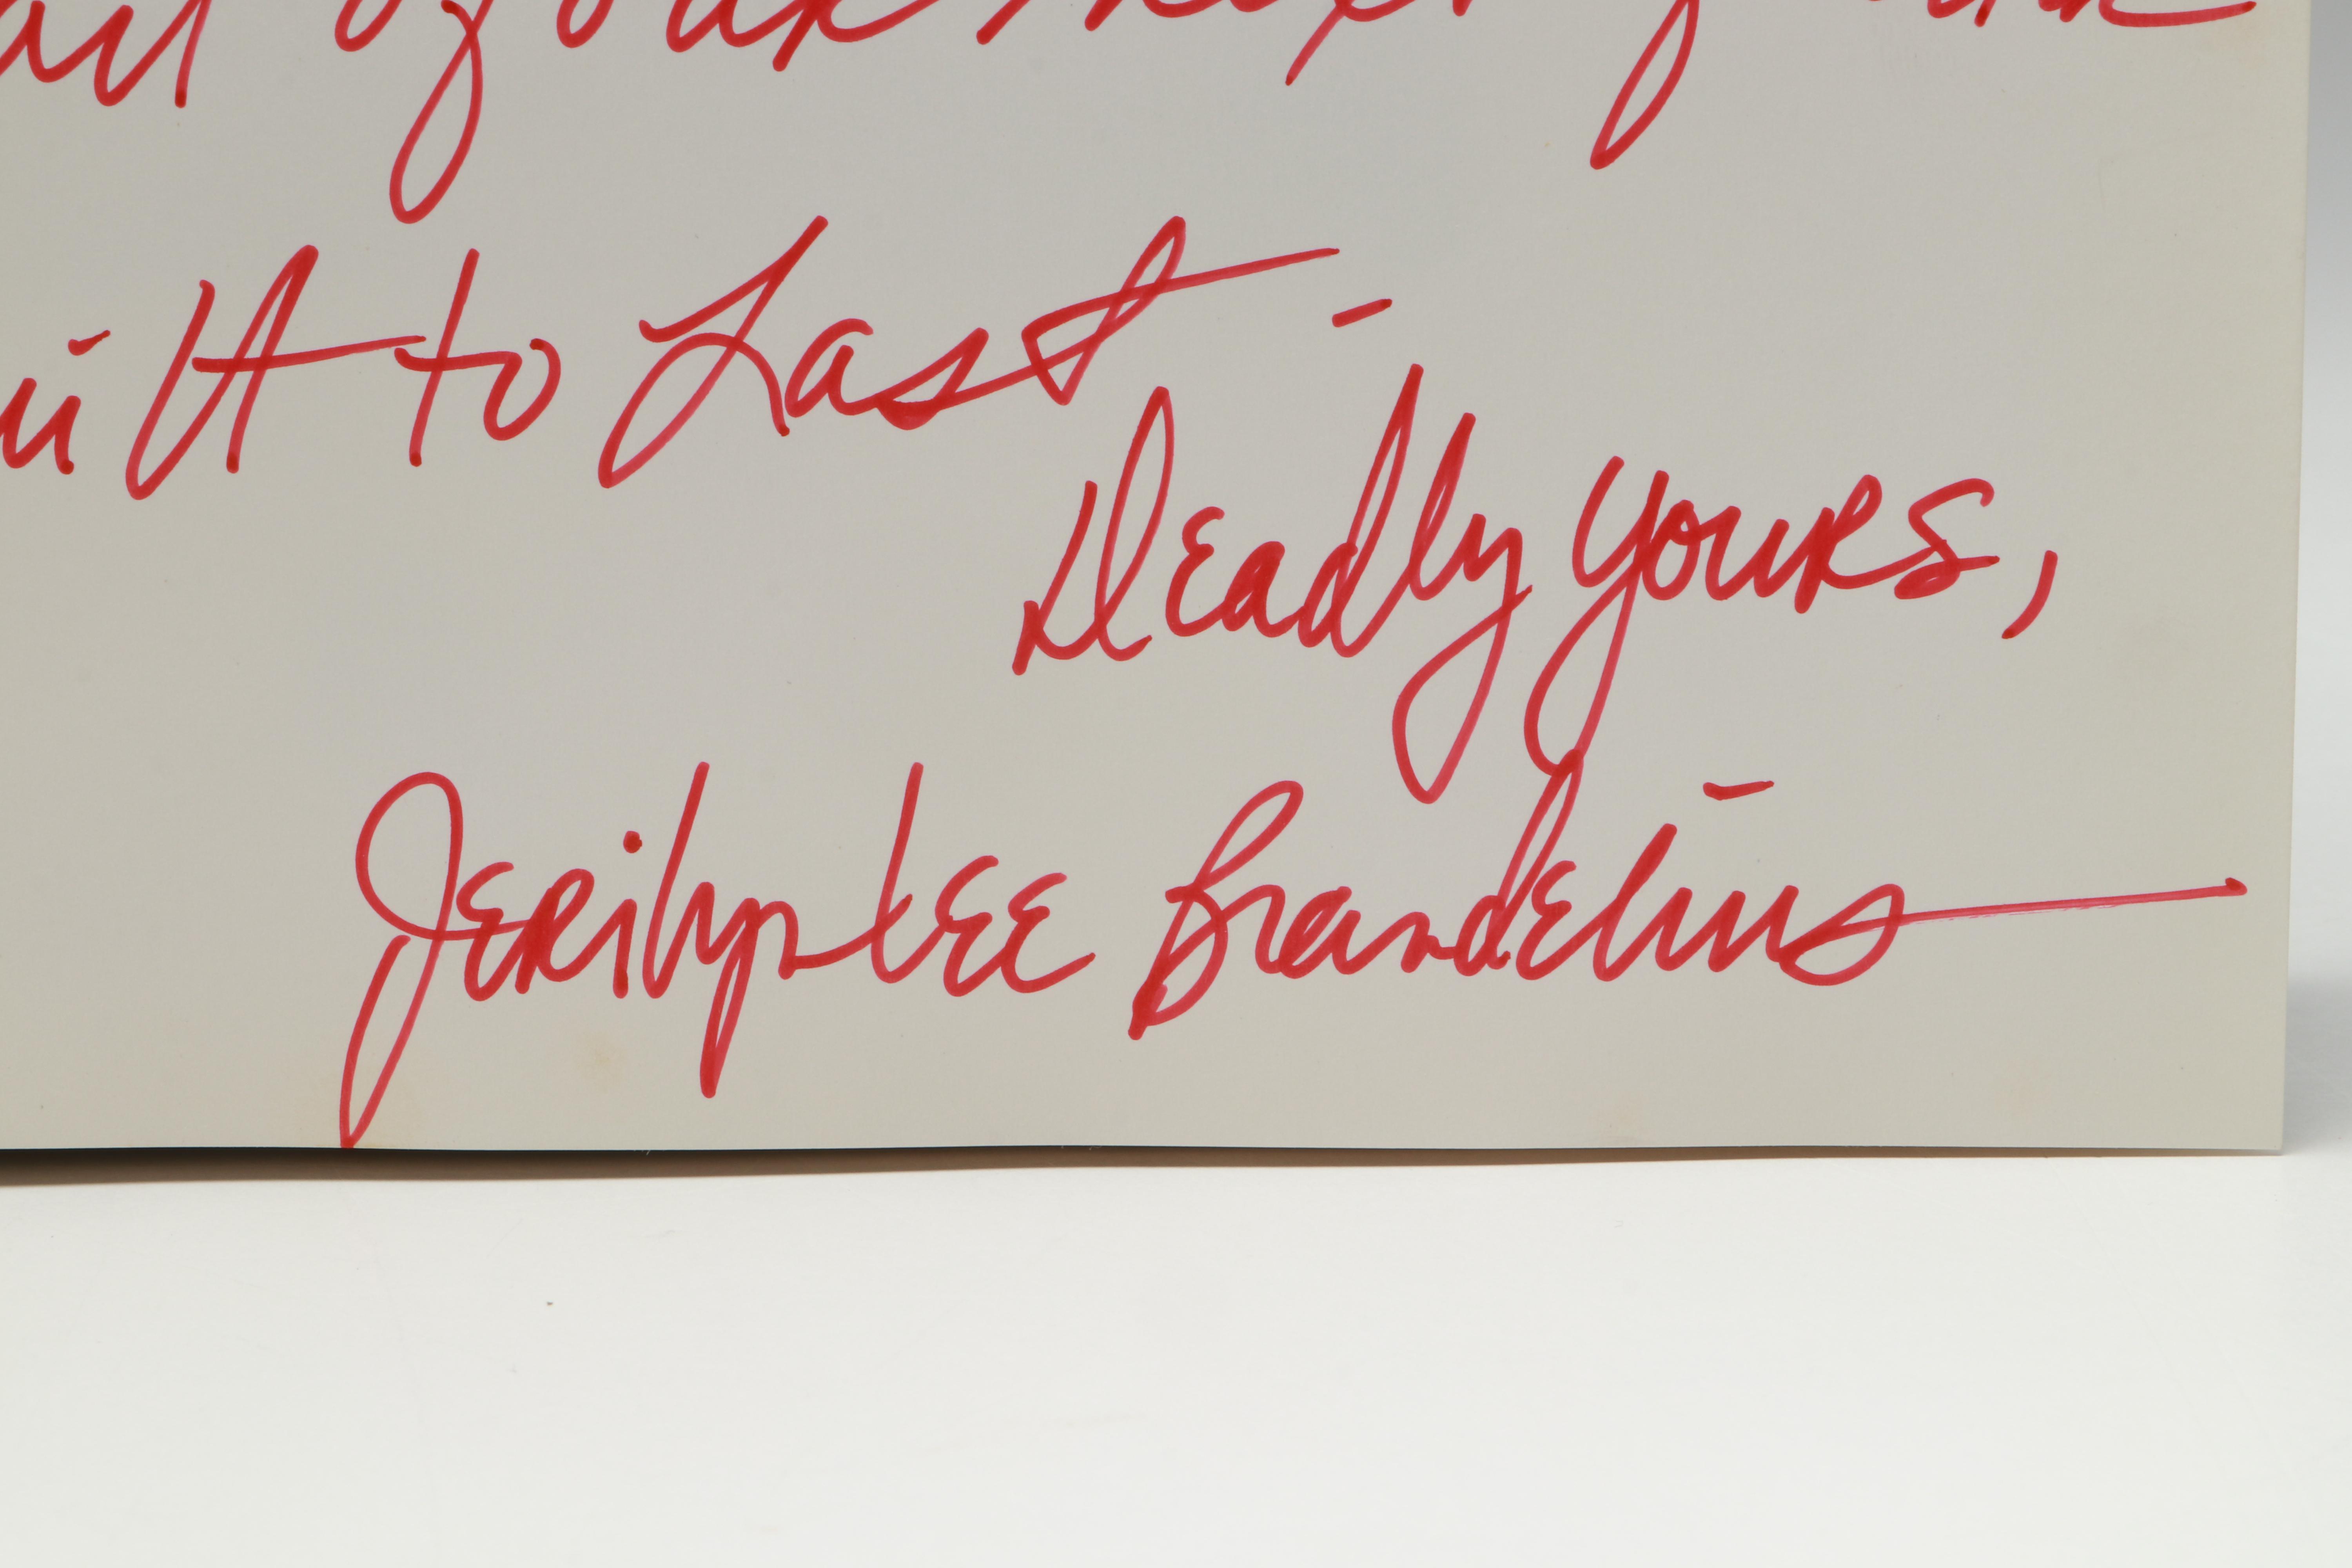 of our next
uilt to Last -
Deadly yours,
Jerilyn Lee Brandelius